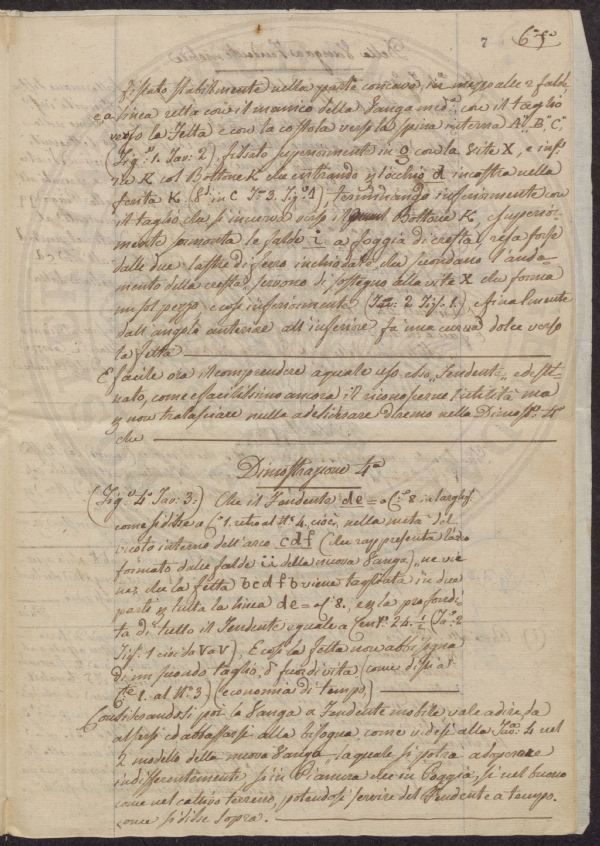 7 6.to
fissato stabilmente nella parte concava in mezzo alle 2 falde,
e a linea retta con il manico della Vanga med.a con il taglio
verso la Fetta e con la costola verso la spina interna A" B" C"
(Fig.a 1. Tav: 2), fissato superiormente in g con la Vite X, e
col Bottone K che entrando p l'occhio d incastra nella
ferita K. (8 in C Fig.a 1), terminando inferiormente con
il taglio che si incurva verso il Bottone K e superior-
mente sormonta le falde i. a foggia di cresta, resa forte
dalle due lastre di ferro inchiodate, che secondano l'anda-
mento della cresta, servono di sostegno alla vite X che forma
un sol pezzo e così inferiormente (Tav: 2 Fig. 1.), e finalmente
dall'angolo anteriore all'inferiore fà una curva dolce verso
la fetta
È facile ora il comprendere a quale uso esso „Fendente„ è desti-
nato, come è facilissimo ancora il riconoscerne l'utilità ma
p non tralasciare nulla a desiderare diremo nella Dimost.e 4a
che
Dimostrazione 4a
(Fig.a 4a Tav: 3.) Che il Fendente de = a 8 in larghez.
come si disse a 1. retro al N.o 4, cioè, nella metà del
vuoto interno dell'arco cdf (che rappresenta l'arco
formato dalle falde ii della nuova Vanga), ne vie-
ne, che la fetta bcdfb viene tagliata in due
parti p tutta la linea de = 8. e p la profondi-
tà di tutto il Fendente uguale a Cent. 24. ½ (Ta. 2
Fig. 1 cioè da V a V), E così la fetta non abbisogna
di un secondo taglio, di fuor di vita (come dissi a
1. al N.o 3) (economia di tempo)
Considerandosi poi la Vanga a Fendente mobile vale a dire, da
alzarsi ed abbassarsi alla bisogna, come videsi alla Tav: 4 nel
2 modello della nuova Vanga, la quale si potrà adoperare
indifferentemente sì in Pianura che in Poggio, sì nel buono
come nel cattivo terreno, potendosi servire del Fendente a tempo.
come si disse sopra.